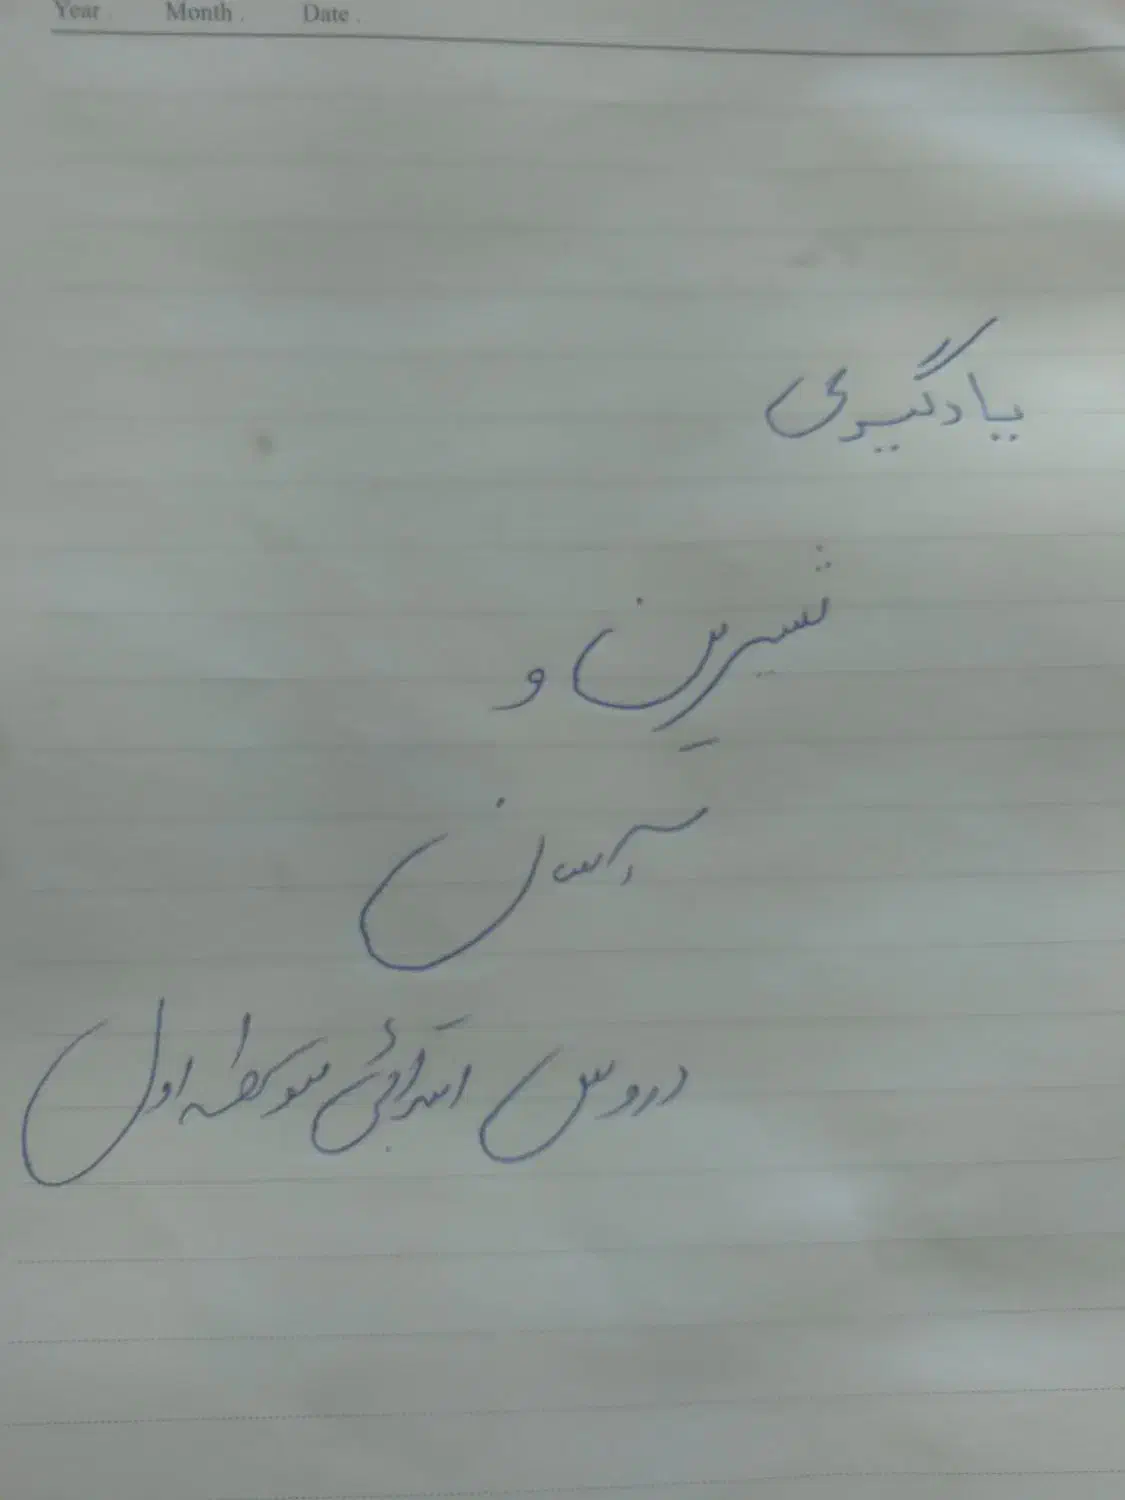 Year . Month . Date .
یادگیری
شیرین و
آسان
دروس ابتدائی متوسطه اول